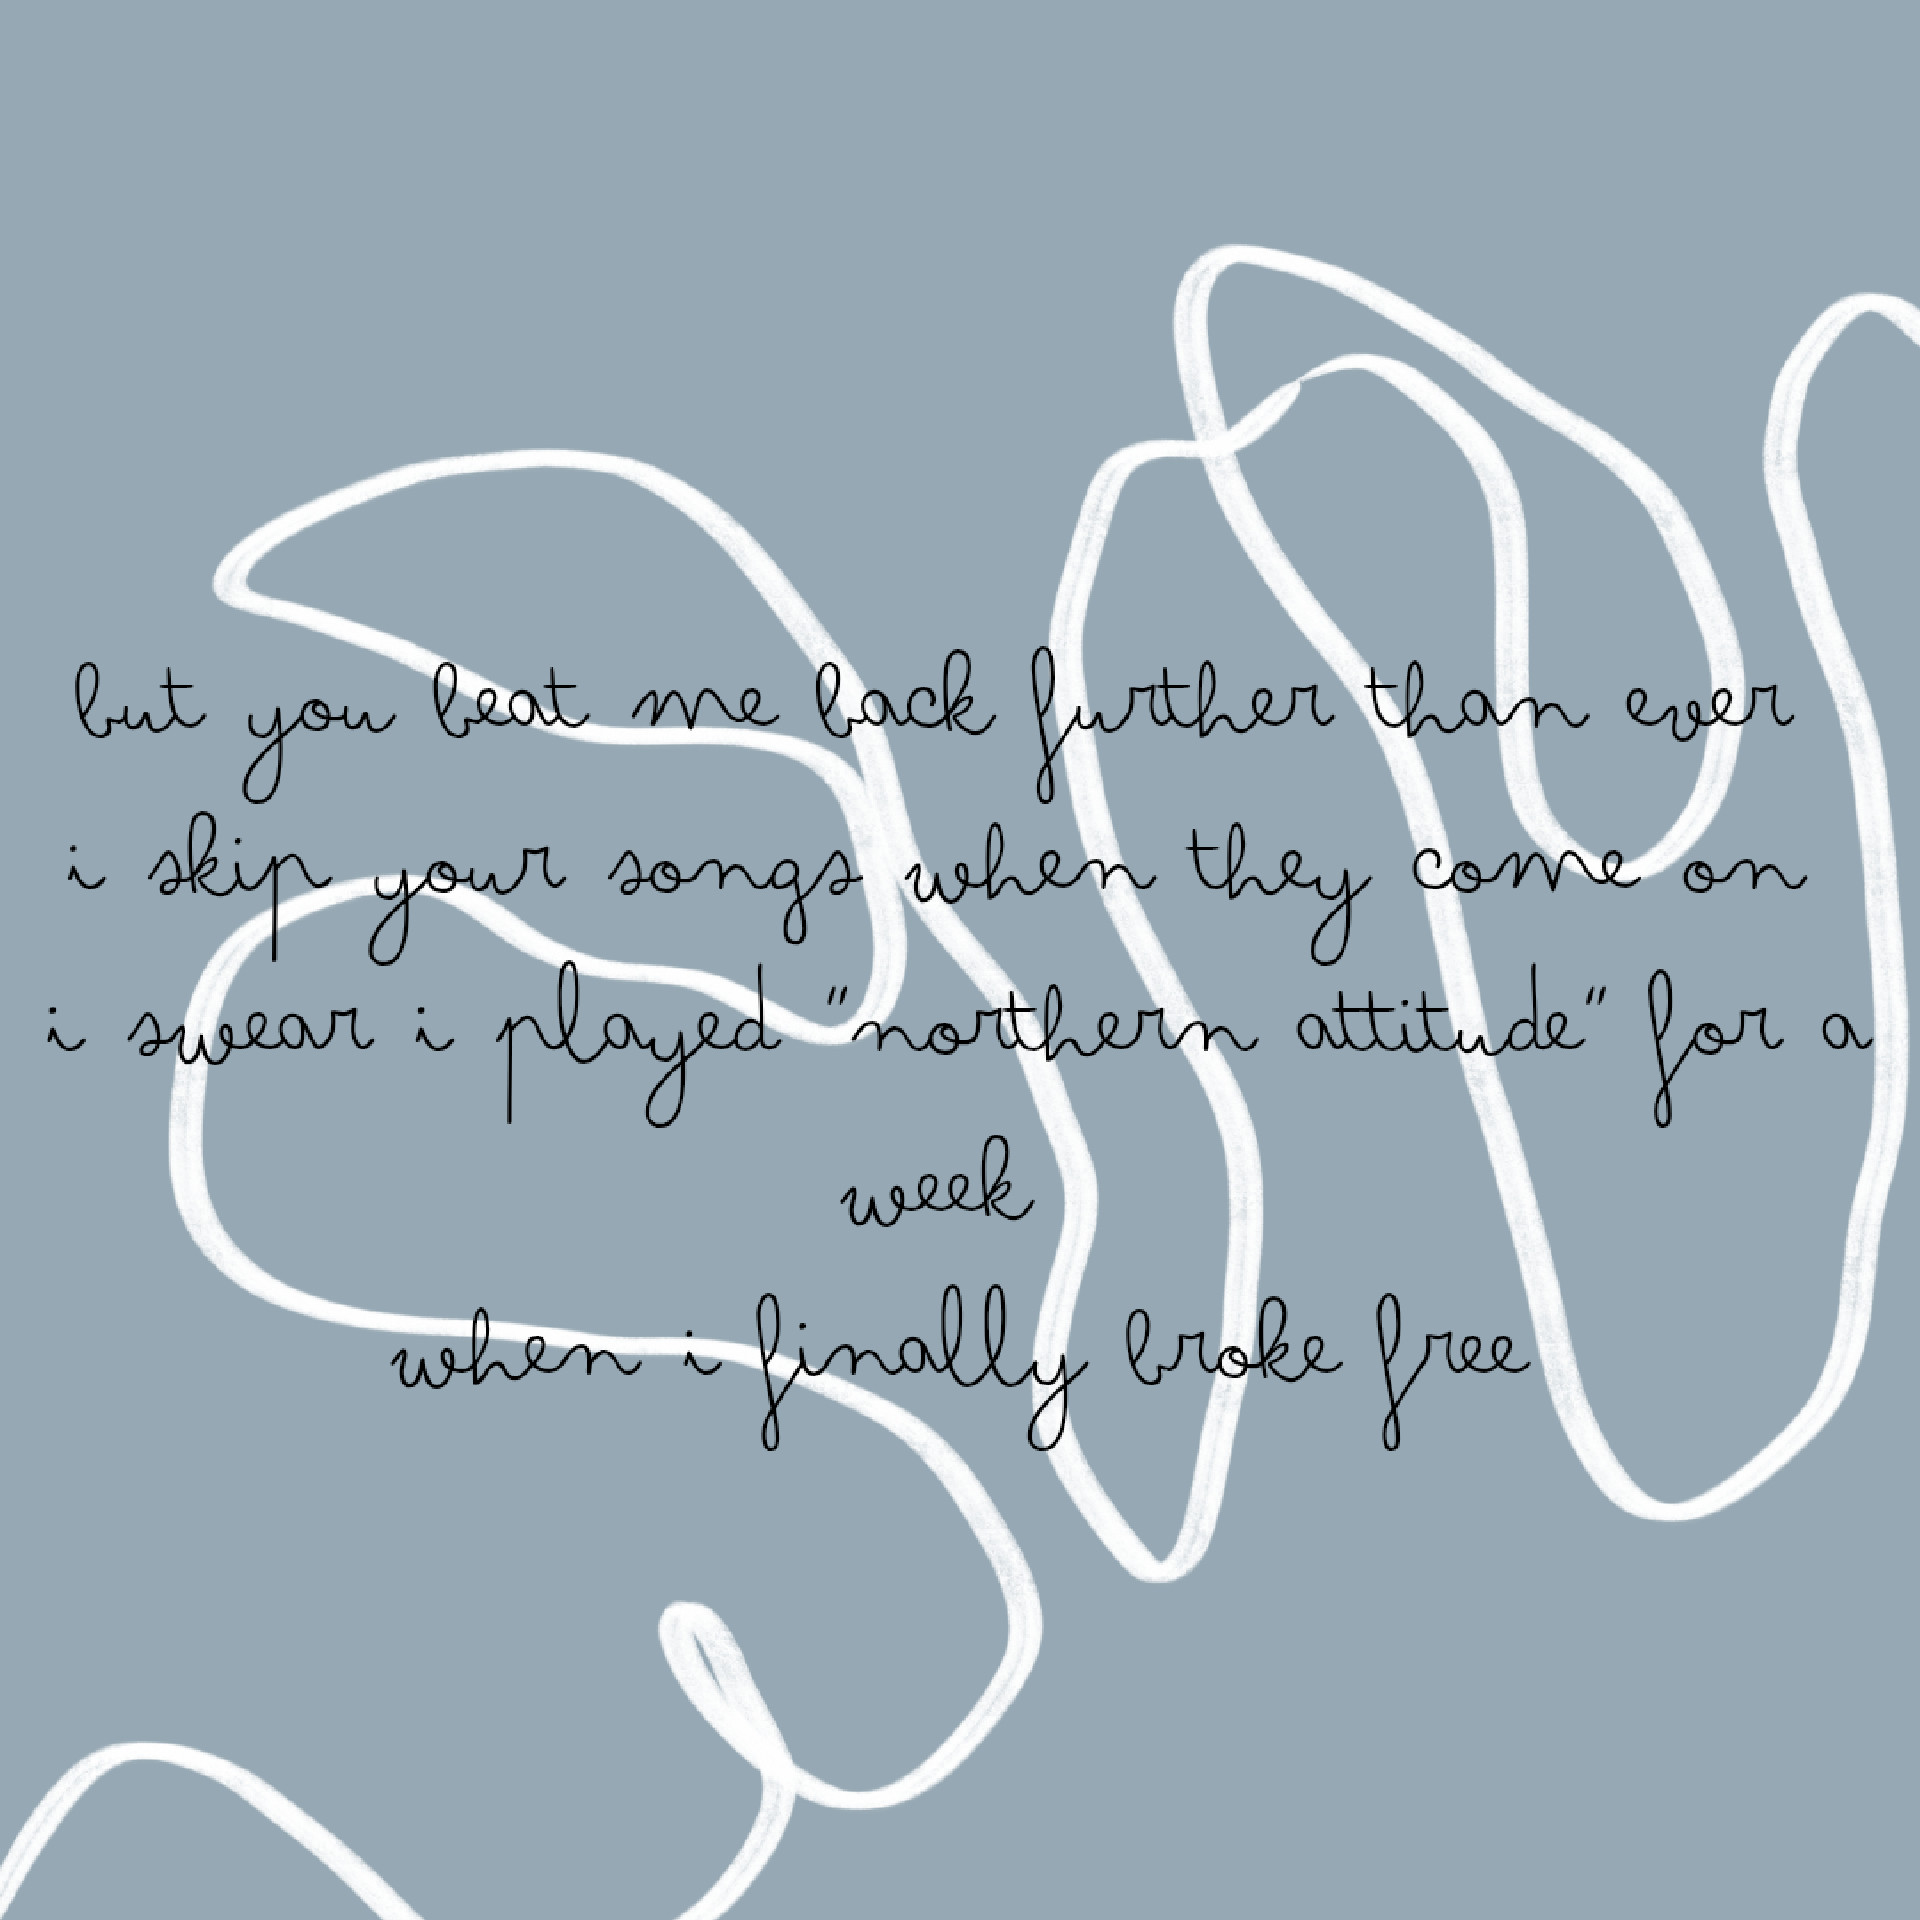 but you beat me back further than ever
i skip your songs when they come on
i swear i played "northern attitude" for a
week
when i finally broke free